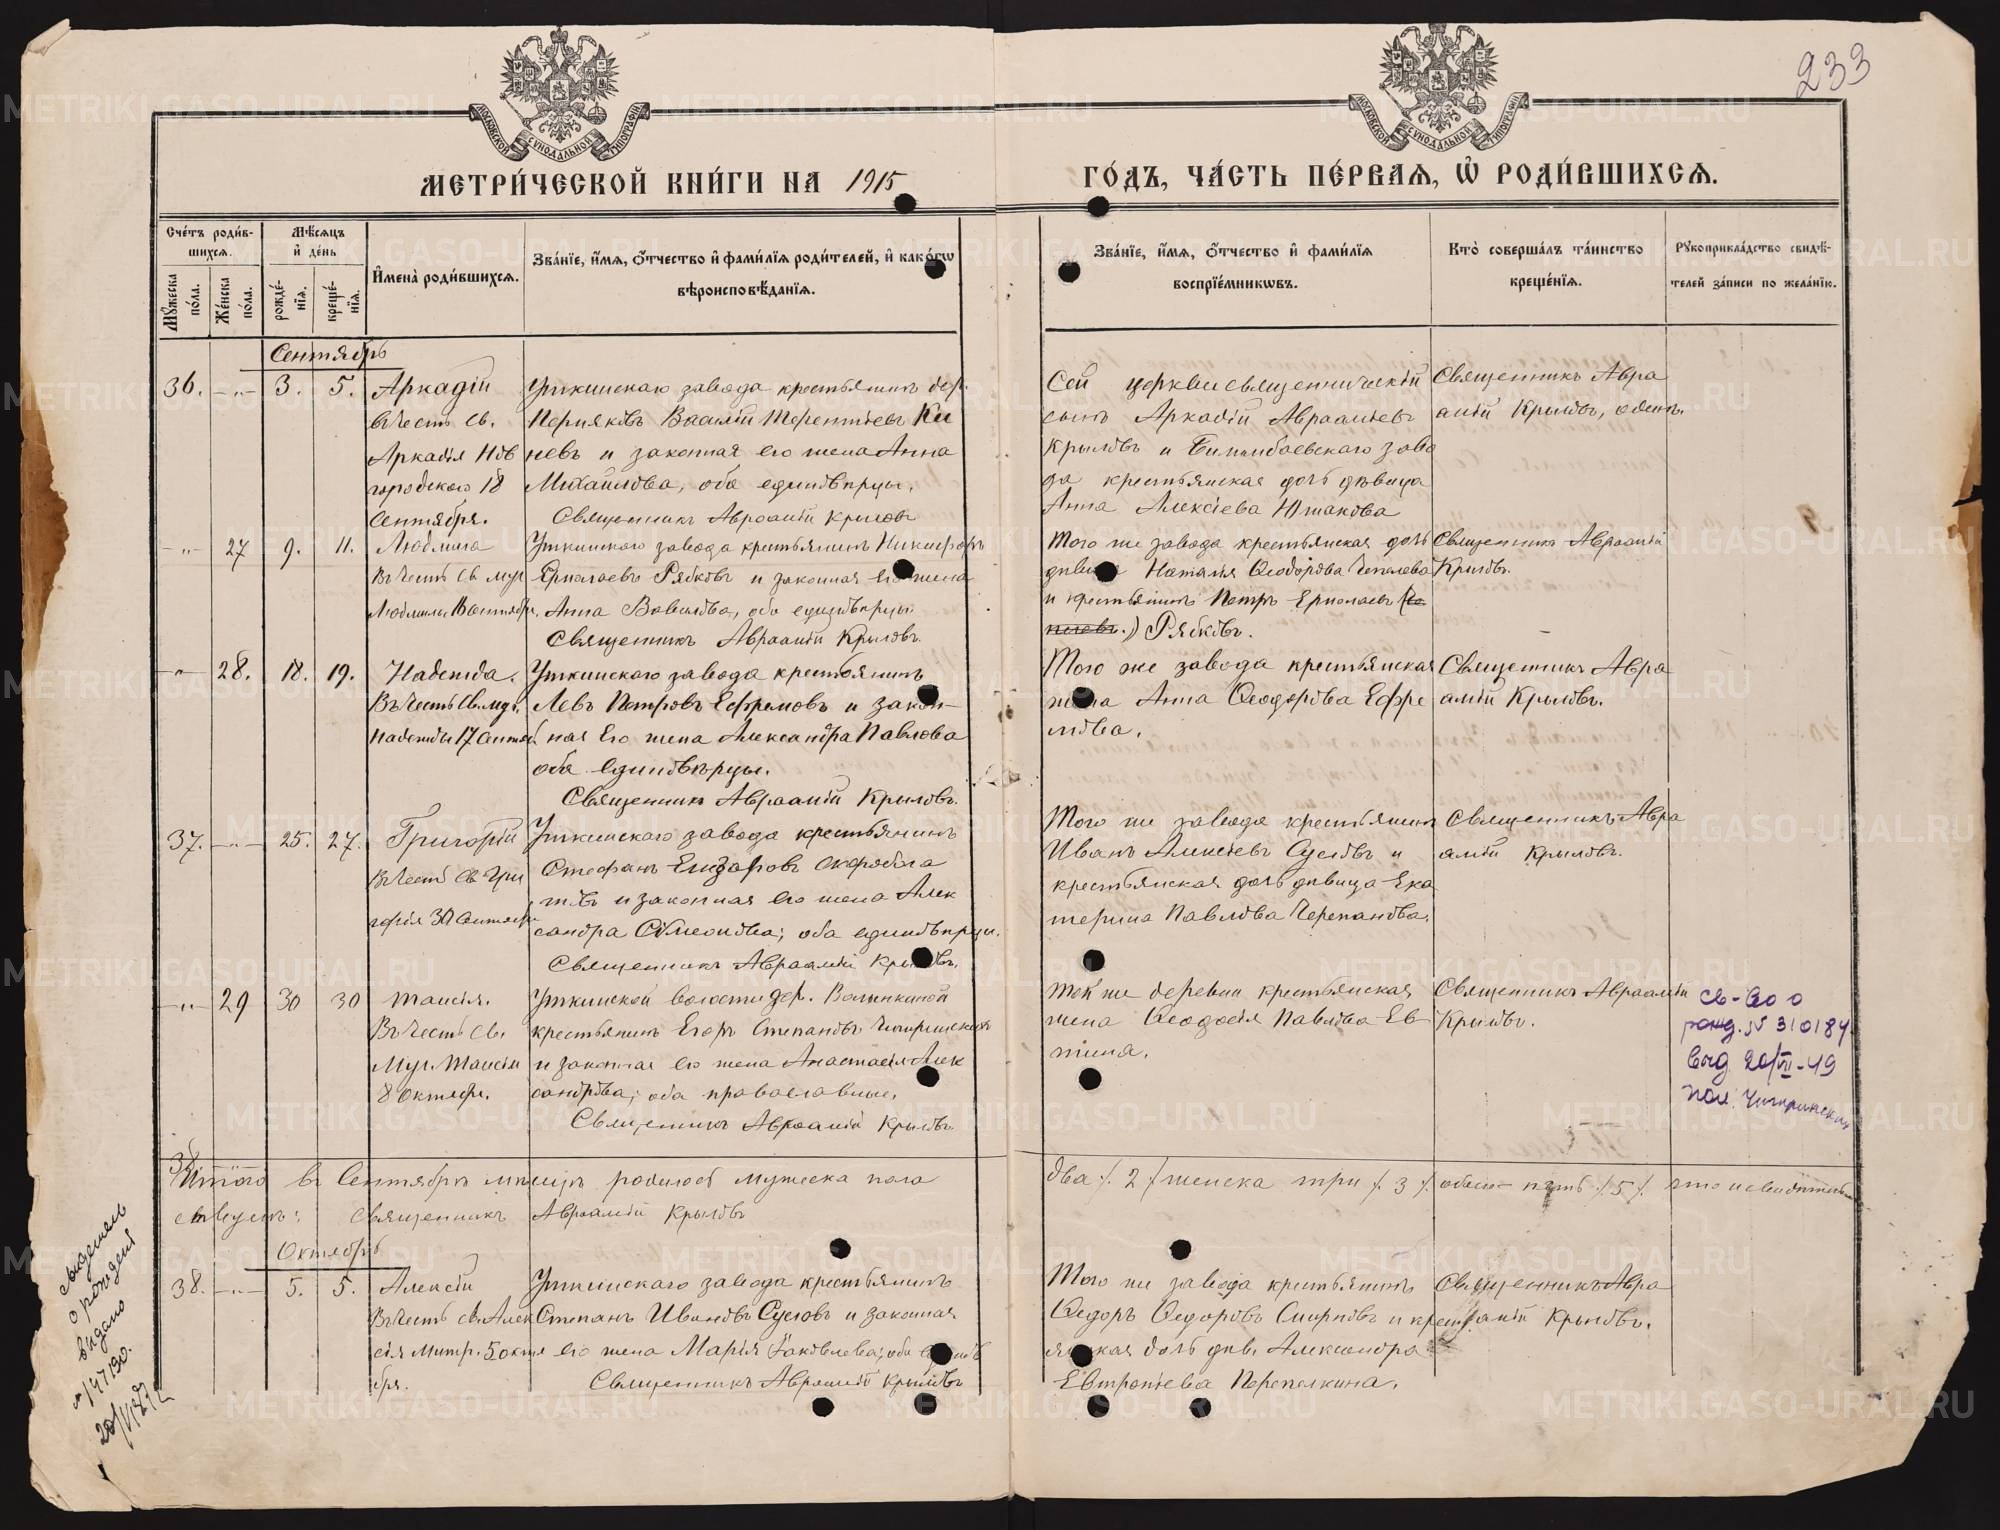 233
МЕТРИ́ЧЕСКОЙ КНИ́ГИ НА 1915 ГО́ДЪ, ЧА́СТЬ ПЕ́РВАѦ, Ѡ҆ РОДИ́ВШИХСѦ.
Сче́тъ роди́в-
шихсѧ.
Мꙋ́жеска по́ла.
Же́нска по́ла.
Мѣ́сѧцъ
и҆ де́нь
рожде́-
нїѧ.
креще́-
нїѧ.
И҆мена̀ роди́вшихсѧ.
Зва́нїе, и҆́мѧ, ѻ҆́тчество и҆ фами́лїѧ роди́телей, и҆ како́гѡ
вѣроисповѣ́данїѧ.
Зва́нїе, и҆́мѧ, ѻ҆́тчество и҆ фами́лїѧ
воспрїе́мникѡвъ.
Кто̀ соверша́лъ та́инство
креще́нїѧ.
Рꙋкоприкла́дство свидѣ́-
телей за́писи по жела́нїю.
Сентябрь
36. -"- 3. 5. Аркадій
въ честь св.
Аркадія Нов
городскаго 18
Сентября.
Уткинскаго завода крестьянинъ дер.
Пермяковъ Василій Терентьевъ Ки
невъ и законная его жена Анна
Михайлова, оба единовѣрцы.
Священникъ Авраамій Крыловъ
Сей церкви священническій
сынъ Аркадій Авраамьевъ
Крыловъ и Билимбаевскаго заво
да крестьянская дочь дѣвица
Анна Алексіева Южакова
Священникъ Авра
амій Крыловъ, единъ.
-"- 27 9. 11. Людмила
Въ честь св. муч
Людмилы 16 Сентябр.
Уткинскаго завода крестьянинъ Никифоръ
Ермолаевъ Рябковъ и законная его жена
Анна Вавилова, оба единовѣрцы
Священникъ Авраамій Крыловъ.
Того же завода крестьянская дочь
дѣвица Наталія Ѳеодорова Чепелева
и крестьянинъ Петръ Ермолаевъ
Рябковъ.
Священникъ Авраамій
Крыловъ.
-"- 28. 18. 19. Надежда.
Въ честь св. муч.
Надежды 17 Сентяб.
Уткинскаго завода крестьянинъ
Левъ Петровъ Ефремовъ и закон-
ная его жена Александра Павлова
оба единовѣрцы.
Священникъ Авраамій Крыловъ.
Того же завода крестьянская
жена Анна Ѳеодорова Ефре
мова.
Священникъ Авра
амій Крыловъ.
37. -"- 25. 27. Григорій
Въ честь св. Гри
горія 30 Сентябр.
Уткинскаго завода крестьянинъ
Стефанъ Елизаровъ Скоробога
товъ и законная его жена Алек
сандра Сѵмеонова; оба единовѣрцы.
Священникъ Авраамій Крыловъ.
Того же завода крестьянинъ
Иванъ Алексіевъ Сусловъ и
крестьянская дочь дѣвица Ека
терина Павлова Черепанова.
Священникъ Авра
амій Крыловъ.
-"- 29 30 30 Таисія.
Въ честь св.
Муч. Таисіи
8 Октябр.
Уткинской волости дер. Волынкиной
крестьянинъ Егоръ Степановъ Чигиринскихъ
и законная его жена Анастасія Алек
сандрова; оба православные.
Священникъ Авраамій Крыловъ
Той же деревни крестьянская
жена Ѳеодосія Павлова Ев
тина.
Священникъ Авраамій
Крыловъ.
св-во о
рожд. № 310184
выд 20/VII-49
пол. Чигиринских
38
Итого въ Сентябрѣ мѣсяцѣ родилось мужеска пола два /.2/. женска три /.3/. обоего пять /.5/. что и свидѣтель
ствуемъ: Священникъ Авраамій Крыловъ
Октябрь
38. -"- 5. 5. Алексій
Въ честь св. Алек
сія Митр. 5 октя
бря.
Уткинскаго завода крестьянинъ
Степанъ Ивановъ Сусловъ и законная
его жена Марія Іаковлева; оба единов
Священникъ Авраамій Крыловъ
Того же завода крестьянинъ
Ѳедоръ Ѳедоровъ Смирновъ и крест
янская дочь дѣв. Александра
Евтропіева Перепелкина.
Священникъ Авра
амій Крыловъ.
свидетель
о рождении
выдано